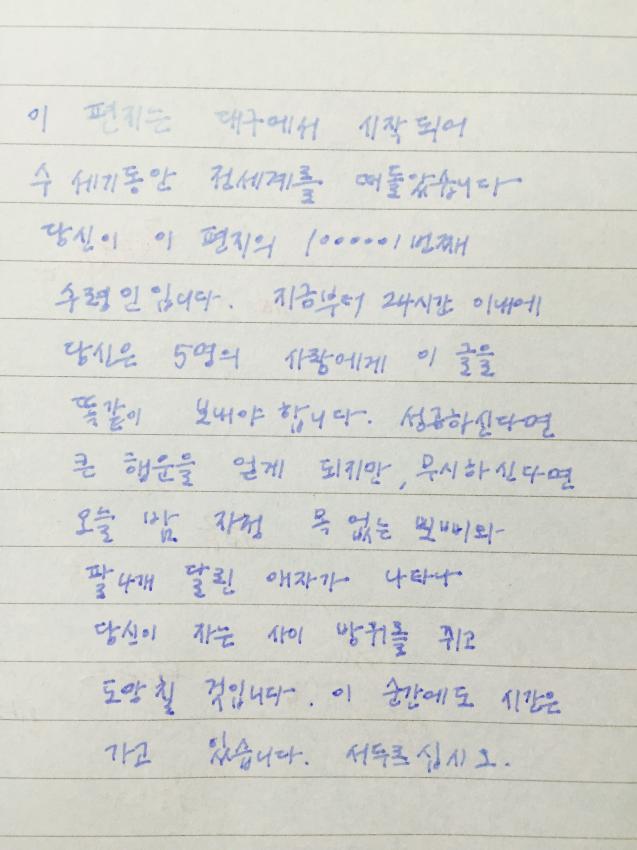 이 편지는 대구에서 시작되어
수 세기동안 전세계를 떠돌았습니다
당신이 이 편지의 1000001번째
수령인입니다. 지금부터 24시간 이내에
당신은 5명의 사람에게 이 글을
똑같이 보내야 합니다. 성공하신다면
큰 행운을 얻게 되지만, 무시하신다면
오늘 밤 자정 목 없는 삐삐와
팔 4개 달린 애자가 나타나
당신이 자는 사이 방귀를 뀌고
도망칠 것입니다. 이 순간에도 시간은
가고 있습니다. 서두르십시오.